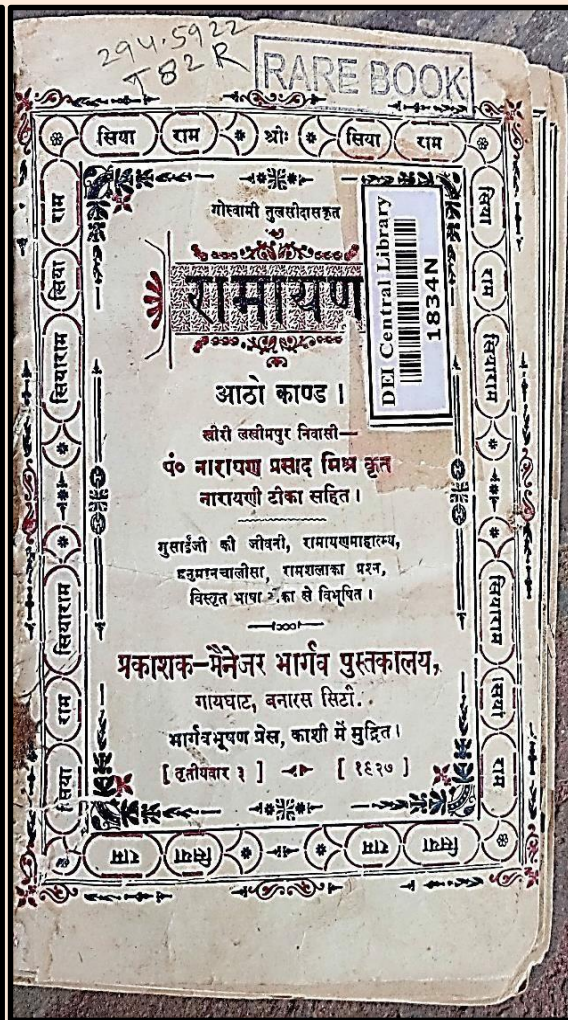 294.5922
T82R
RARE BOOK
सिया राम श्रीः सिया राम
गोस्वामी तुलसीदासकृत
रामायण
DEI Central Library
1834N
आठो काण्ड ।
खीरी लखीमपुर निवासी—
पं० नारायण प्रसाद मिश्र कृत
नारायणी टीका सहित ।
गुसाईंजी की जीवनी, रामायणमाहात्म्य,
हनुमानचालीसा, रामशलाका प्रश्न,
विस्तृत भाषा टीका से विभूषित ।
प्रकाशक—मैनेजर भार्गव पुस्तकालय,
गायघाट, बनारस सिटी.
भार्गवभूषण प्रेस, काशी में मुद्रित ।
[ तृतीयवार ३ ] [ १९२७ ]
सिया राम सियाराम सियाराम सिया राम
सिया राम सियाराम सियाराम राम सिया
सिया राम सिया राम